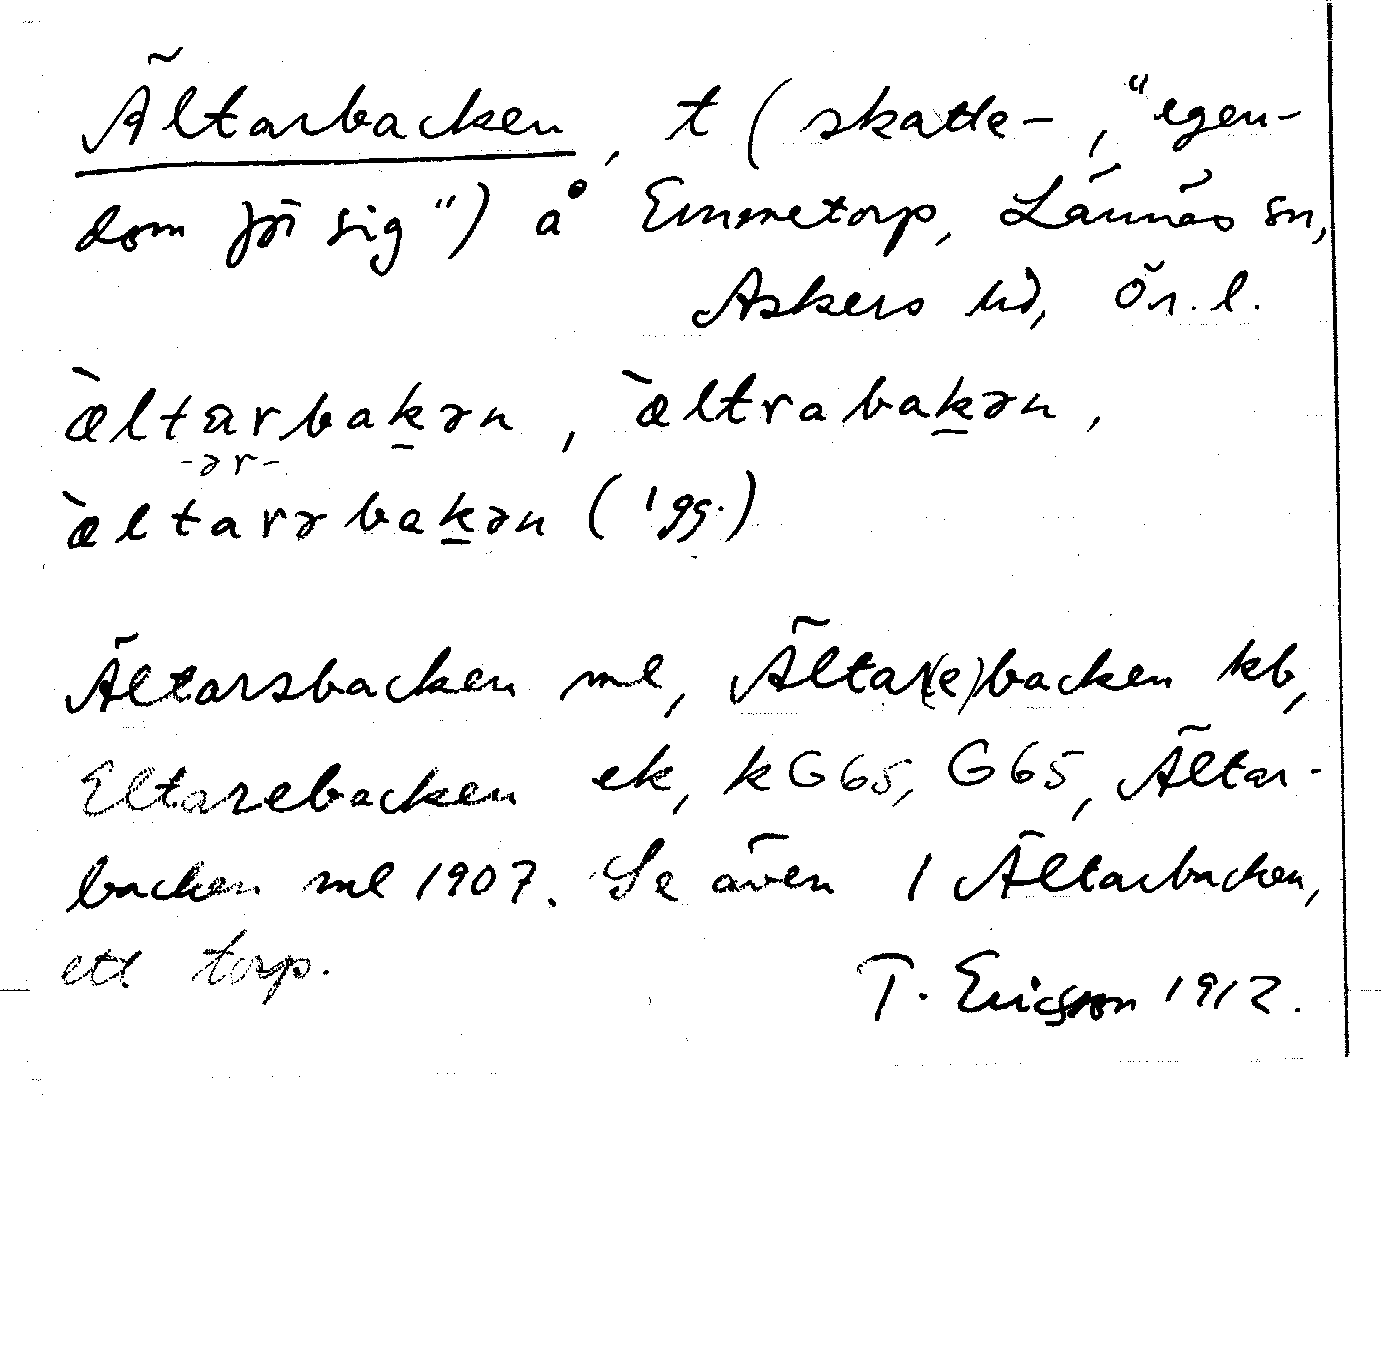 Ältarbacken, t (skatte-, "egen-
dom för sig") å Emmetorp, Lännäs sn,
Askers hd, Ör. l.
æ̀ltarbakən, æ̀ltrabakən,
-ər-
æ̀ltarəbakən ('gg.)
Ältarsbacken ml, Ältar(e)backen kb,
Eltarebacken ek, kG65, G65, Ältar-
backen ml 1907. Se även 1 Ältarbacken,
ett torp.
T. Ericsson 1912.